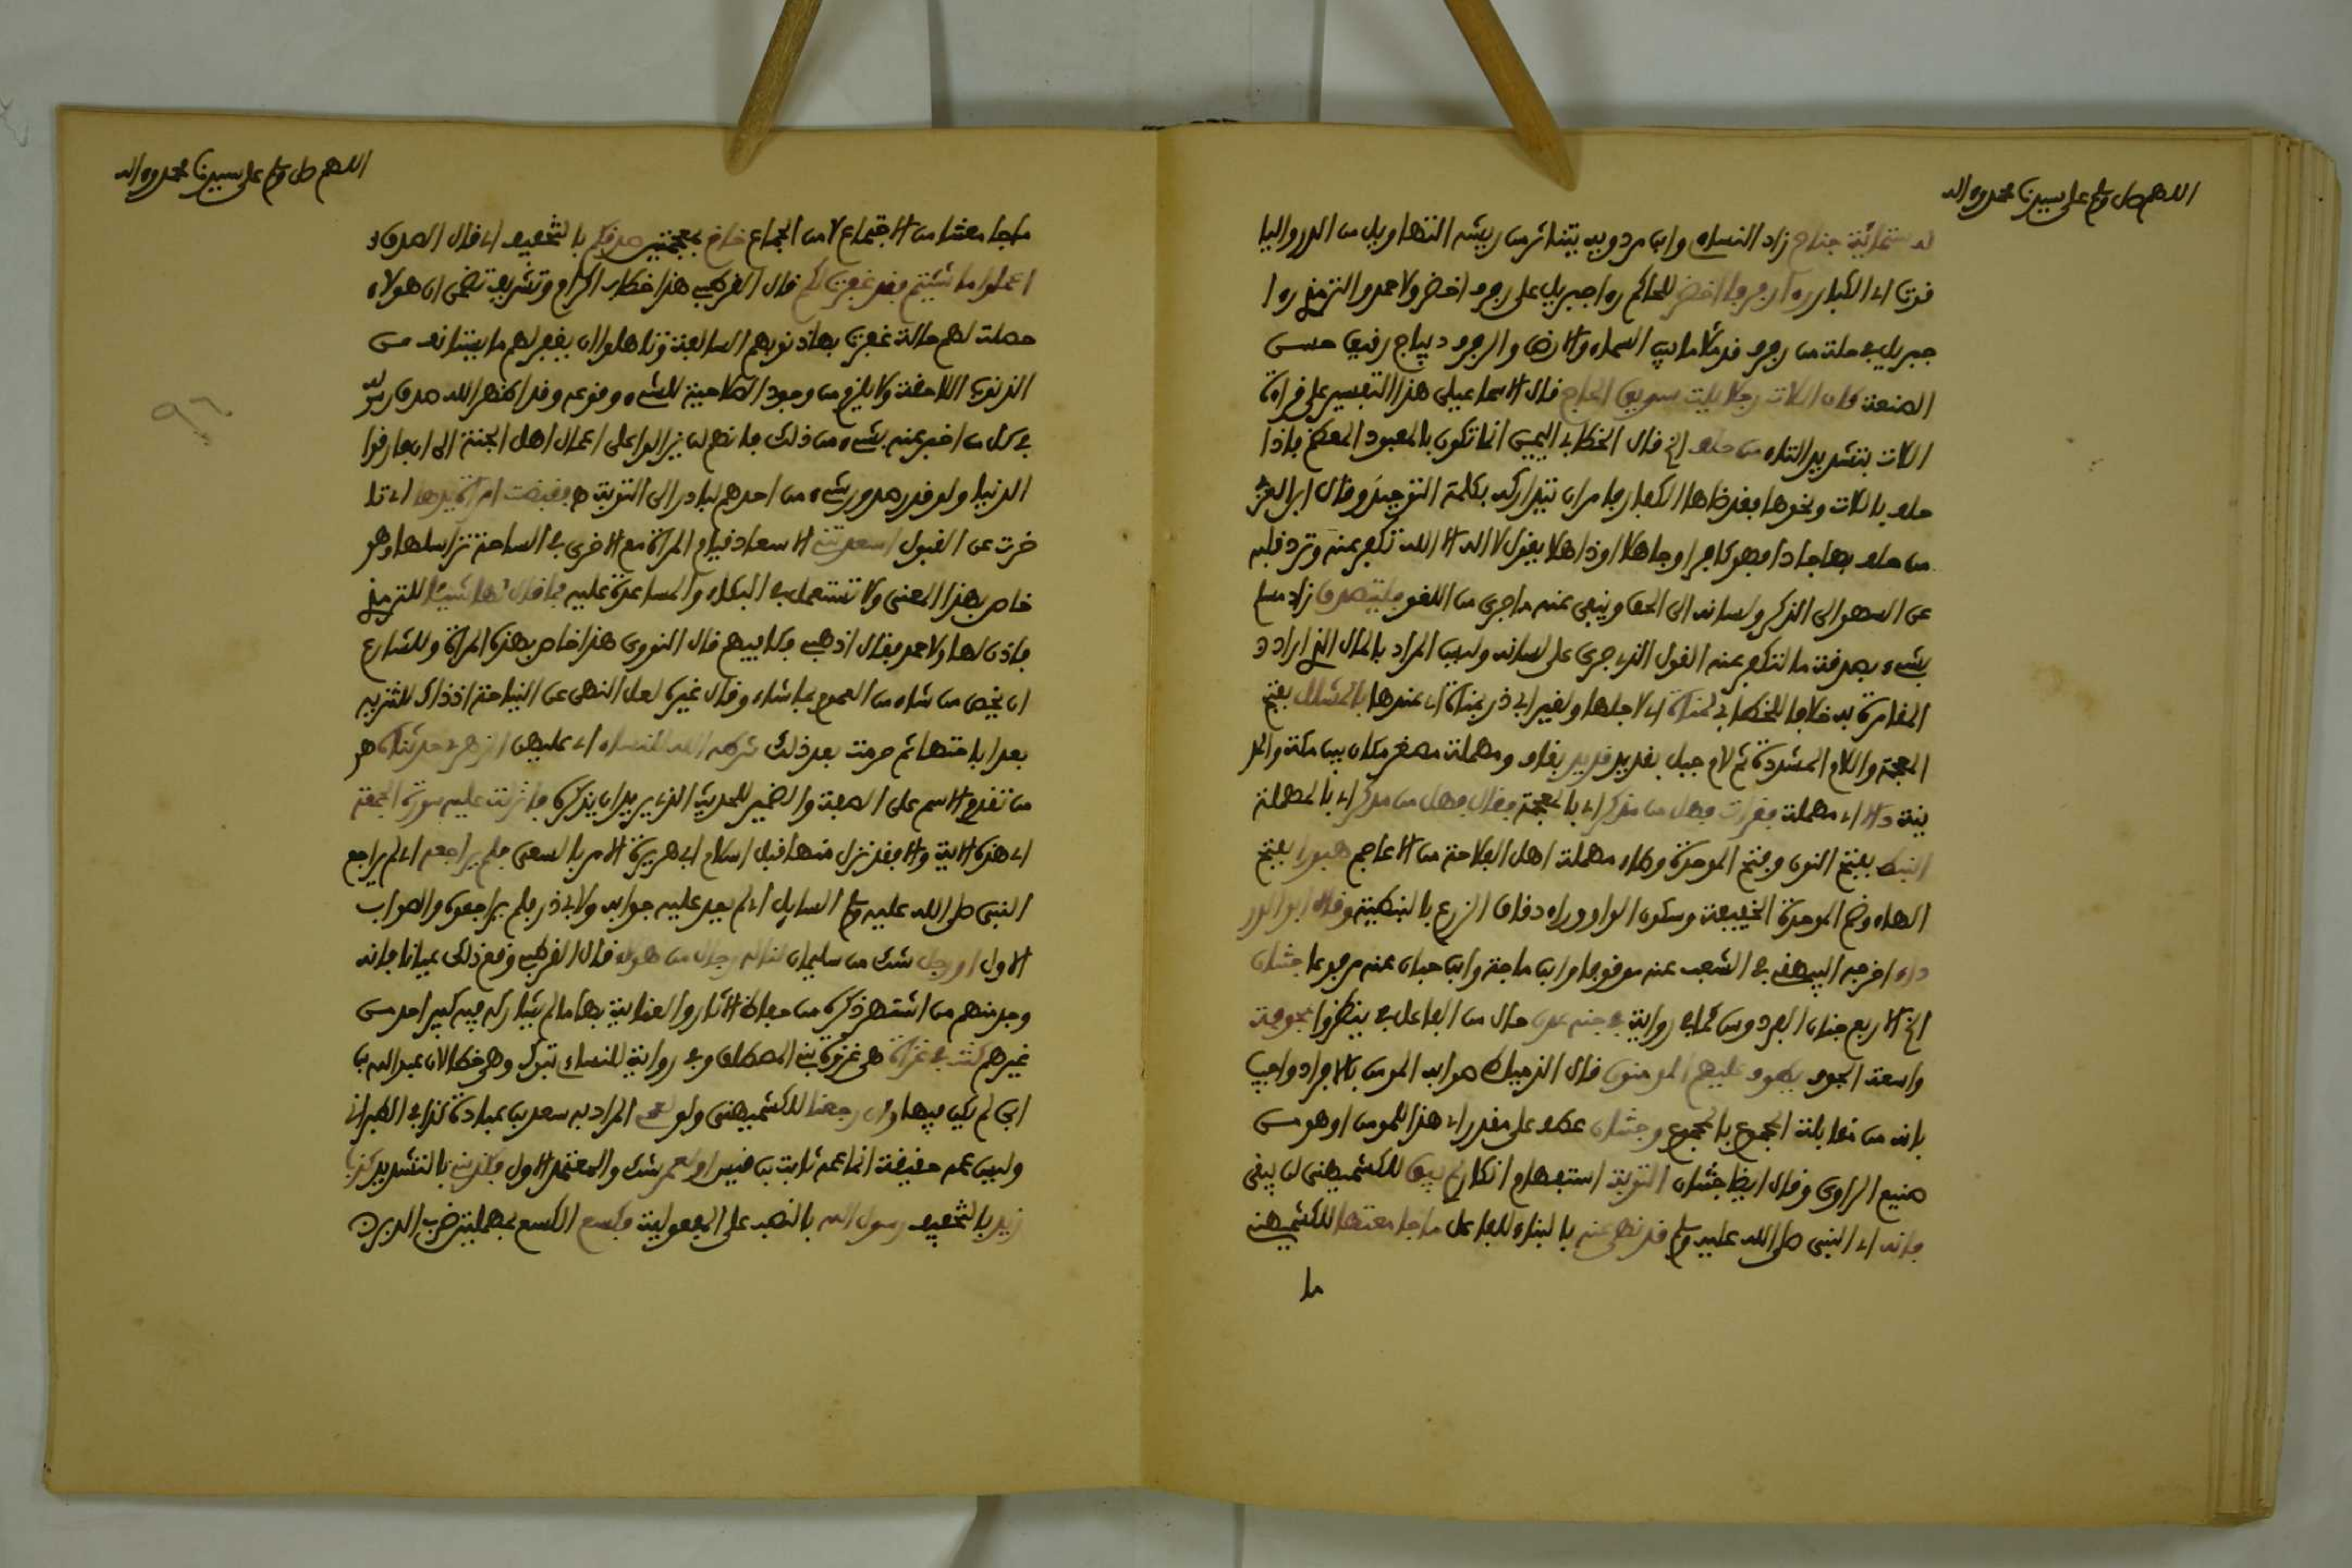 اللهم صل وسلم على سيدنا محمد وءاله
له ستمائة جناح زاد النساءي وابن مردويه يتناثر من ريشه التهاويل من الدر واليا
قوت اي الكبار رءا رفرفا اخضر للحاكم رءا جبريل على رفرف اخضر ولاحمد والترمذي رءا
جبريل في حلة من رفرف قد ملأ ما بين السماء والارض والرفرف ديباج رقيق حسن
الصنعة كان اللات رجلا يلت سويق الحاج قال الاسماعيلي هذا التفسير على قراءة
اللات بتشديد التاء من حلف الخ قال الخطابي اليمين انما تكون بالمعبود المعظم فاذا
حلف باللات ونحوها فقد ضاها الكفار فامر ان يتداركه بكلمة التوحيد وقال ابن العربي
من حلف بها جادا فهو كافر او جاهلا او ذاهلا يقول لا اله الا الله تكفر عنه وترد قلبه
عن السهو الى الذكر ولسانه الى الحق وينفي عنه ما جرى من اللغو فليتصدق زاد مسلم
بشيء بصدقة ما لتكفر عنه القول الذي جرى على لسانه وليس المراد بالمال الذي اراد
المقامرة به خلافا للخطابي لمناة اي لاجلها ولغير ابي ذر بمناة اي عندها بالمشلل بفتح
المعجمة واللام المشددة ثم لام جبل بقديد قديد بقاف ومهملة مصغر مكان بين مكة والمد
ينة دالا اي مهملة فقرأت فهل من مذكر اي بالمعجمة فقال فهل من مدكر اي بالمهملة
النبط بفتح النون وفتح الموحدة وطاء مهملة اهل الفلاحة من الاعاجم هبورا بفتح
الهاء وضم الموحدة الخفيفة وسكون الواو وراء دقاق الزرع بالنبطية وقال ابو الدر
داء اخرجه البيهقي في الشعب عنه موقوفا وابن ماجة وابن حبان عنه مرفوعا جنتان
الخ الاربع جنان الفردوس كما في رواية في جنة عدن حال من الفاعل في ينظروا مجوفة
واسعة الجوف يطوف عليهم المومنون قال الدمياطي صوابه المومن بالافراد واجيب
بانه من مقابلة المجموع بالمجموع وجنتان عطف على مقدر اي هذا للمومن او هو من
صنيع الراوي وقال ايظا جنتان التوبة استفهام انكار لم يبق للكشميهني لن يبقى
فانه اي النبي صلى الله عليه وسلم قد نهى عنه بالبناء للفاعل ما جامعتها للكشميهني
ما
اللهم صل وسلم على سيدنا محمد وءاله
ما جامعتنا من الاجتماع لا من الجماع خاخ بمعجمتين صدقكم بالتخفيف اي قال الصدق
اعملوا ما شئتم فقد غفرت لكم قال القرطبي هذا خطاب اكرام وتشريف تضمن ان هولاء
حصلت لهم حالة غفرت بها ذنوبهم السالفة وتاهلوا ان يغفر لهم ما يستانف من
الذنوب اللاحقة ولا يلزم من وجود الصلاحية للشيء وقوعه وقد اظهر الله صدق رسوله
في كل من اخبر عنه بشيء من ذلك فانهم لن يزالوا على اعمال اهل الجنة الى ان فارقوا
الدنيا ولو قدر صدور شيء من احدهم لبادر الى التوبة فقبضت امراة يدها اي تا
خرت عن القبول اسعدتني الاسعاد قيام المراة مع الاخرى في النياحة تراسلها وهو
خاص بهذا المعنى ولا تستعمل في البكاء والمساعدة عليه فما قال لها شيئا للترمذي
فاذن لها ولاحمد فقال اذهبي فكافيهم قال النووي هذا خاص بهذه المراة وللشارع
ان يخص من شاء من العموم بما شاء وقال غيره لعل النهي عن النياحة اذ ذاك للتنزيه
بعد اباحتها ثم حرمت بعد ذلك شرطه الله للنساء اي عليهن الزهري حدثناه هو
من تقديم الاسم على الصفة والضمير للحديث الذي يريد ان يذكره فانزلت عليه سورة الجمعة
اي هذه الاية والا فقد نزل منها قبل اسلام ابي هريرة الامر بالسعي فلم يراجعه اي لم يراجع
النبي صلى الله عليه وسلم السايل اي لم يعد عليه جوابه ولابي ذر فلم يراجعوه والصواب
الاول او رجل شك من سليمان لناله رجال من هولاء قال القرطبي وقع ذلك عيانا فانه
وجد منهم من اشتهر ذكره من حفاظ الاثار والعناية بها ما لم يشاركه فيه كبير احد من
غيرهم كنت في غزاة هي غزوة بني المصطلق وفي رواية للنساءي تبوك وهي خطا لان عبد الله بن
ابي لم يكن فيها ولئن رجعنا للكشميهني ولو لعمي المراد به سعد بن عبادة كذا في الطبراني
وليس عمه حقيقة انما عمه ثابت بن قيس او لعمر شك والمعتمد الاول فكذبني بالتشديد كذبا
زيد بالتخفيف رسول الله بالنصب على المفعولية فكسع الكسع بمهملتين ضرب الدبر